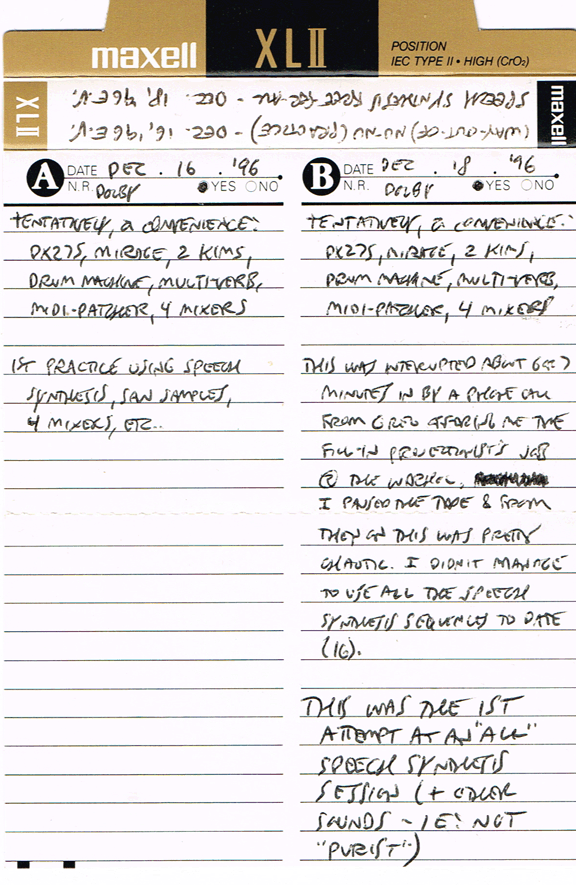 maxell XLII POSITION
IEC TYPE II • HIGH (CrO₂)
XLII
maxell
(WAY-OUT-OF) NU-NU (PRACTICE) - DEC. 16, '96 E.V.
SPEECH SYNTHESIS FREE-FOR-ALL - DEC. 18, '96 E.V.
A DATE DEC . 16 . '96
N.R. DOLBY YES NO
TENTATIVELY, A CONVENIENCE:
DX27S, MIRAGE, 2 KIMS,
DRUM MACHINE, MULTI-VERB,
MIDI-PATCHER, 4 MIXERS
1ST PRACTICE USING SPEECH
SYNTHESIS, SAN SAMPLES,
4 MIXERS, ETC..
B DATE DEC . 18 . '96
N.R. DOLBY YES NO
TENTATIVELY, A CONVENIENCE:
DX27S, MIRAGE, 2 KIMS,
DRUM MACHINE, MULTI-VERB,
MIDI-PATCHER, 4 MIXERS
THIS WAS INTERRUPTED ABOUT 6 (?)
MINUTES IN BY A PHONE CALL
FROM GREG OFFERING ME THE
FILL-IN PROJECTIONIST'S JOB
@ THE WARHOL,
I PAUSED THE TAPE & FROM
THEN ON THIS WAS PRETTY
CHAOTIC. I DIDN'T MANAGE
TO USE ALL THE SPEECH
SYNTHESIS SEQUENCES TO DATE
(16).
THIS WAS THE 1ST
ATTEMPT AT AN "ALL"
SPEECH SYNTHESIS
SESSION (+ OTHER
SOUNDS - IE: NOT
"PURIST")